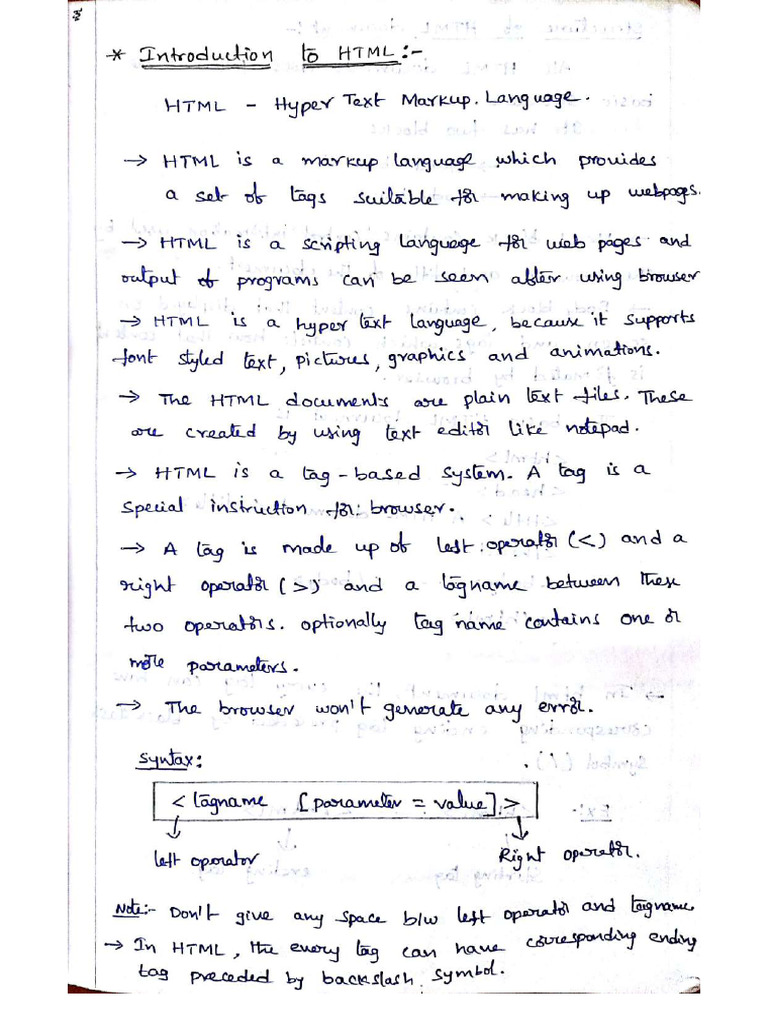 * Introduction to HTML:-
HTML - Hyper Text Markup. Language.
→ HTML is a markup language which provides
a set of tags suitable for making up webpages.
→ HTML is a scripting language for web pages and
output of programs can be seen after using browser
→ HTML is a hyper text language, because it supports
font styled text, pictures, graphics and animations.
→ The HTML documents are plain text files. These
are created by using text editor like notepad.
→ HTML is a tag-based system. A tag is a
special instruction for browser.
→ A tag is made up of left operator (<) and a
right operator (>) and a tagname between these
two operators. optionally tag name contains one or
more parameters.
→ The browser won't generate any error.
Syntax:
< tagname [parameter = value] >
left operator Right operator.
Note:- Don't give any space b/w left operator and tagname.
→ In HTML, the every tag can have corresponding ending
tag preceded by backslash symbol.